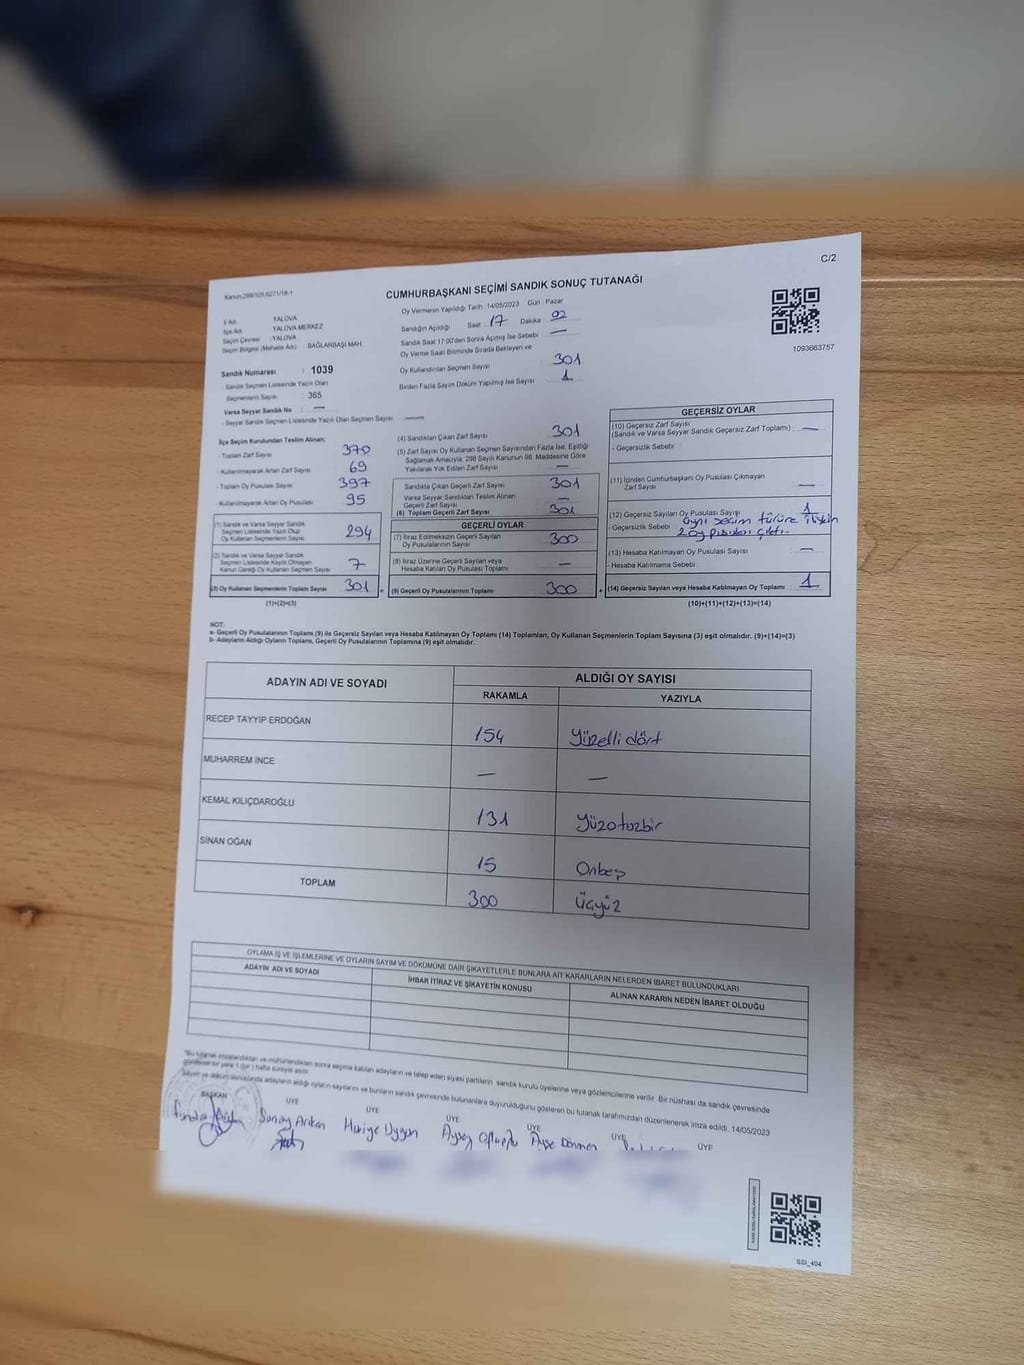 C/2
Kanun:298/105,6271/18-1
CUMHURBAŞKANI SEÇİMİ SANDIK SONUÇ TUTANAĞI
İl Adı : YALOVA
İlçe Adı : YALOVA MERKEZ
Seçim Çevresi : YALOVA
Seçim Bölgesi (Mahalle Adı) : BAĞLARBAŞI MAH.
Sandık Numarası : 1039
Sandık Seçmen Listesinde Yazılı Olan
Seçmenlerin Sayısı : 365
Varsa Seyyar Sandık No : —
- Seyyar Sandık Seçmen Listesinde Yazılı Olan Seçmen Sayısı —
Oy Vermenin Yapıldığı Tarih :14/05/2023 Gün : Pazar
Sandığın Açıldığı Saat : 17 Dakika : 02
Sandık Saat 17:00'den Sonra Açılmış İse Sebebi : —
Oy Verme Saati Bitiminde Sırada Bekleyen ve
Oy Kullandırılan Seçmen Sayısı : 301
Birden Fazla Sayım Döküm Yapılmış İse Sayısı : 1
1093663757
İlçe Seçim Kurulundan Teslim Alınan;
- Toplam Zarf Sayısı : 370
- Kullanılmayarak Artan Zarf Sayısı : 69
- Toplam Oy Pusulası Sayısı : 397
- Kullanılmayarak Artan Oy Pusulası : 95
(1) Sandık ve Varsa Seyyar Sandık
Seçmen Listesinde Yazılı Olup
Oy Kullanan Seçmenlerin Sayısı 294
(2) Sandık ve Varsa Seyyar Sandık
Seçmen Listesinde Kayıtlı Olmayan
Kanun Gereği Oy Kullanan Seçmen Sayısı 7
(3) Oy Kullanan Seçmenlerin Toplam Sayısı 301
(1)+(2)=(3)
(4) Sandıktan Çıkan Zarf Sayısı : 301
(5) Zarf Sayısı Oy Kullanan Seçmen Sayısından Fazla İse, Eşitliği
Sağlamak Amacıyla; 298 Sayılı Kanunun 98. Maddesine Göre
Yakılarak Yok Edilen Zarf Sayısı : —
Sandıkta Çıkan Geçerli Zarf Sayısı : 301
Varsa Seyyar Sandıktan Teslim Alınan
Geçerli Zarf Sayısı : —
(6) Toplam Geçerli Zarf Sayısı : 301
GEÇERLİ OYLAR
(7) İtiraz Edilmeksizin Geçerli Sayılan
Oy Pusulalarının Sayısı : 300
(8) İtiraz Üzerine Geçerli Sayılan veya
Hesaba Katılan Oy Pusulaları Toplamı : —
(9) Geçerli Oy Pusulalarının Toplamı : 300
GEÇERSİZ OYLAR
(10) Geçersiz Zarf Sayısı
(Sandık ve Varsa Seyyar Sandık Geçersiz Zarf Toplamı) : —
- Geçersizlik Sebebi :
(11) İçinden Cumhurbaşkanı Oy Pusulası Çıkmayan
Zarf Sayısı : —
(12) Geçersiz Sayılan Oy Pusulası Sayısı : 1
- Geçersizlik Sebebi : Aynı seçim türüne ilişkin
2 oy pusulası çıktı.
(13) Hesaba Katılmayan Oy Pusulası Sayısı : —
- Hesaba Katılmama Sebebi :
(14) Geçersiz Sayılan veya Hesaba Katılmayan Oy Toplamı : 1
(10)+(11)+(12)+(13)=(14)
NOT:
a- Geçerli Oy Pusulalarının Toplamı (9) ile Geçersiz Sayılan veya Hesaba Katılmayan Oy Toplamı (14) Toplamları, Oy Kullanan Seçmenlerin Toplam Sayısına (3) eşit olmalıdır. (9)+(14)=(3)
b- Adayların Aldığı Oyların Toplamı, Geçerli Oy Pusulalarının Toplamına (9) eşit olmalıdır.
ADAYIN ADI VE SOYADI ALDIĞI OY SAYISI
RAKAMLA YAZIYLA
RECEP TAYYİP ERDOĞAN 154 Yüzelli dört
MUHARREM İNCE — —
KEMAL KILIÇDAROĞLU 131 Yüzotuzbir
SİNAN OĞAN 15 Onbeş
TOPLAM 300 Üçyüz
OYLAMA İŞ VE İŞLEMLERİNE VE OYLARIN SAYIM VE DÖKÜMÜNE DAİR ŞİKAYETLERLE BUNLARA AİT KARARLARIN NELERDEN İBARET BULUNDUKLARI
ADAYIN ADI VE SOYADI İHBAR İTİRAZ VE ŞİKAYETİN KONUSU ALINAN KARARIN NEDEN İBARET OLDUĞU
"Bu tutanak imzalandıktan ve mühürlendikten sonra seçime katılan adayların ve talep eden siyasi partilerin sandık kurulu üyelerine veya gözlemcilerine verilir. Bir nüshası da sandık çevresinde
görülecek bir yere 1 (bir) hafta süreyle asılır.
Sayım ve döküm sonucunda adayların aldığı oyların sayılarını ve bunların sandık çevresinde bulunanlara duyurulduğunu gösteren bu tutanak tarafımızdan düzenlenerek imza edildi. 14/05/2023
BAŞKAN ÜYE ÜYE ÜYE ÜYE ÜYE ÜYE
Sunay Arıkan Huriye Uygun Ayşe Dönmen
SSI_404